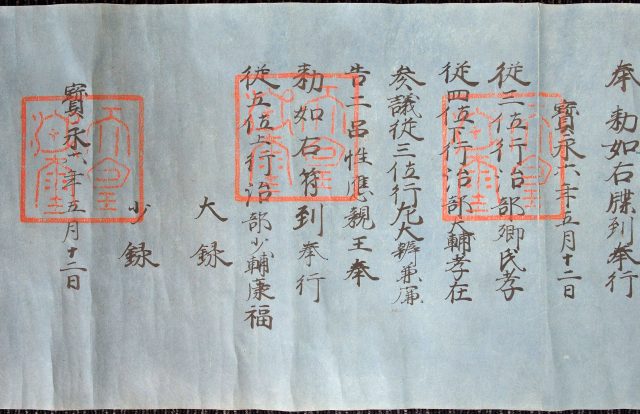 奉 勅如右牒到奉行
寶永六年五月十二日
従三位行治部卿氏孝
従四位下行治部大輔孝在
参議従三位行左大辨兼廉
告二品性應親王奉
勅如右符到奉行
従五位上行治部少輔康福
大録
少録
寶永六年五月十二日